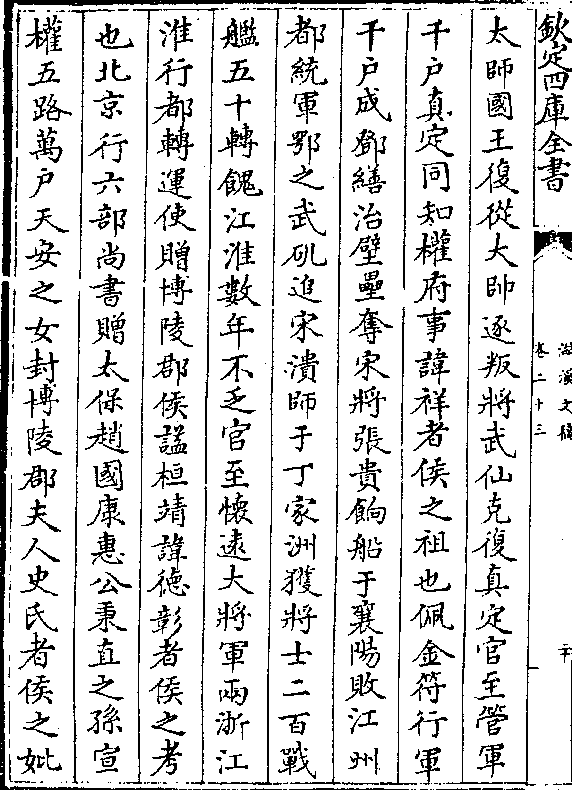 欽定四庫全書
滋溪文稿
卷二十三
太師國王復從大帥逐叛將武仙克復真定官至管軍
千户真定同知權府事諱祥者侯之祖也佩金符行軍
千户成鄧繕治壁壘奪宋將張貴餉船于襄陽敗江州
都統軍鄂之武磯追宋潰師于丁家洲獲將士二百戰
艦五十轉餽江淮數年不乏官至懷遠大將軍兩浙江
淮行都轉運使贈博陵郡侯諡桓靖諱德彰者侯之考
也北京行六部尚書贈太保趙國康惠公秉直之孫宣
權五路萬户天安之女封博陵郡夫人史氏者侯之妣